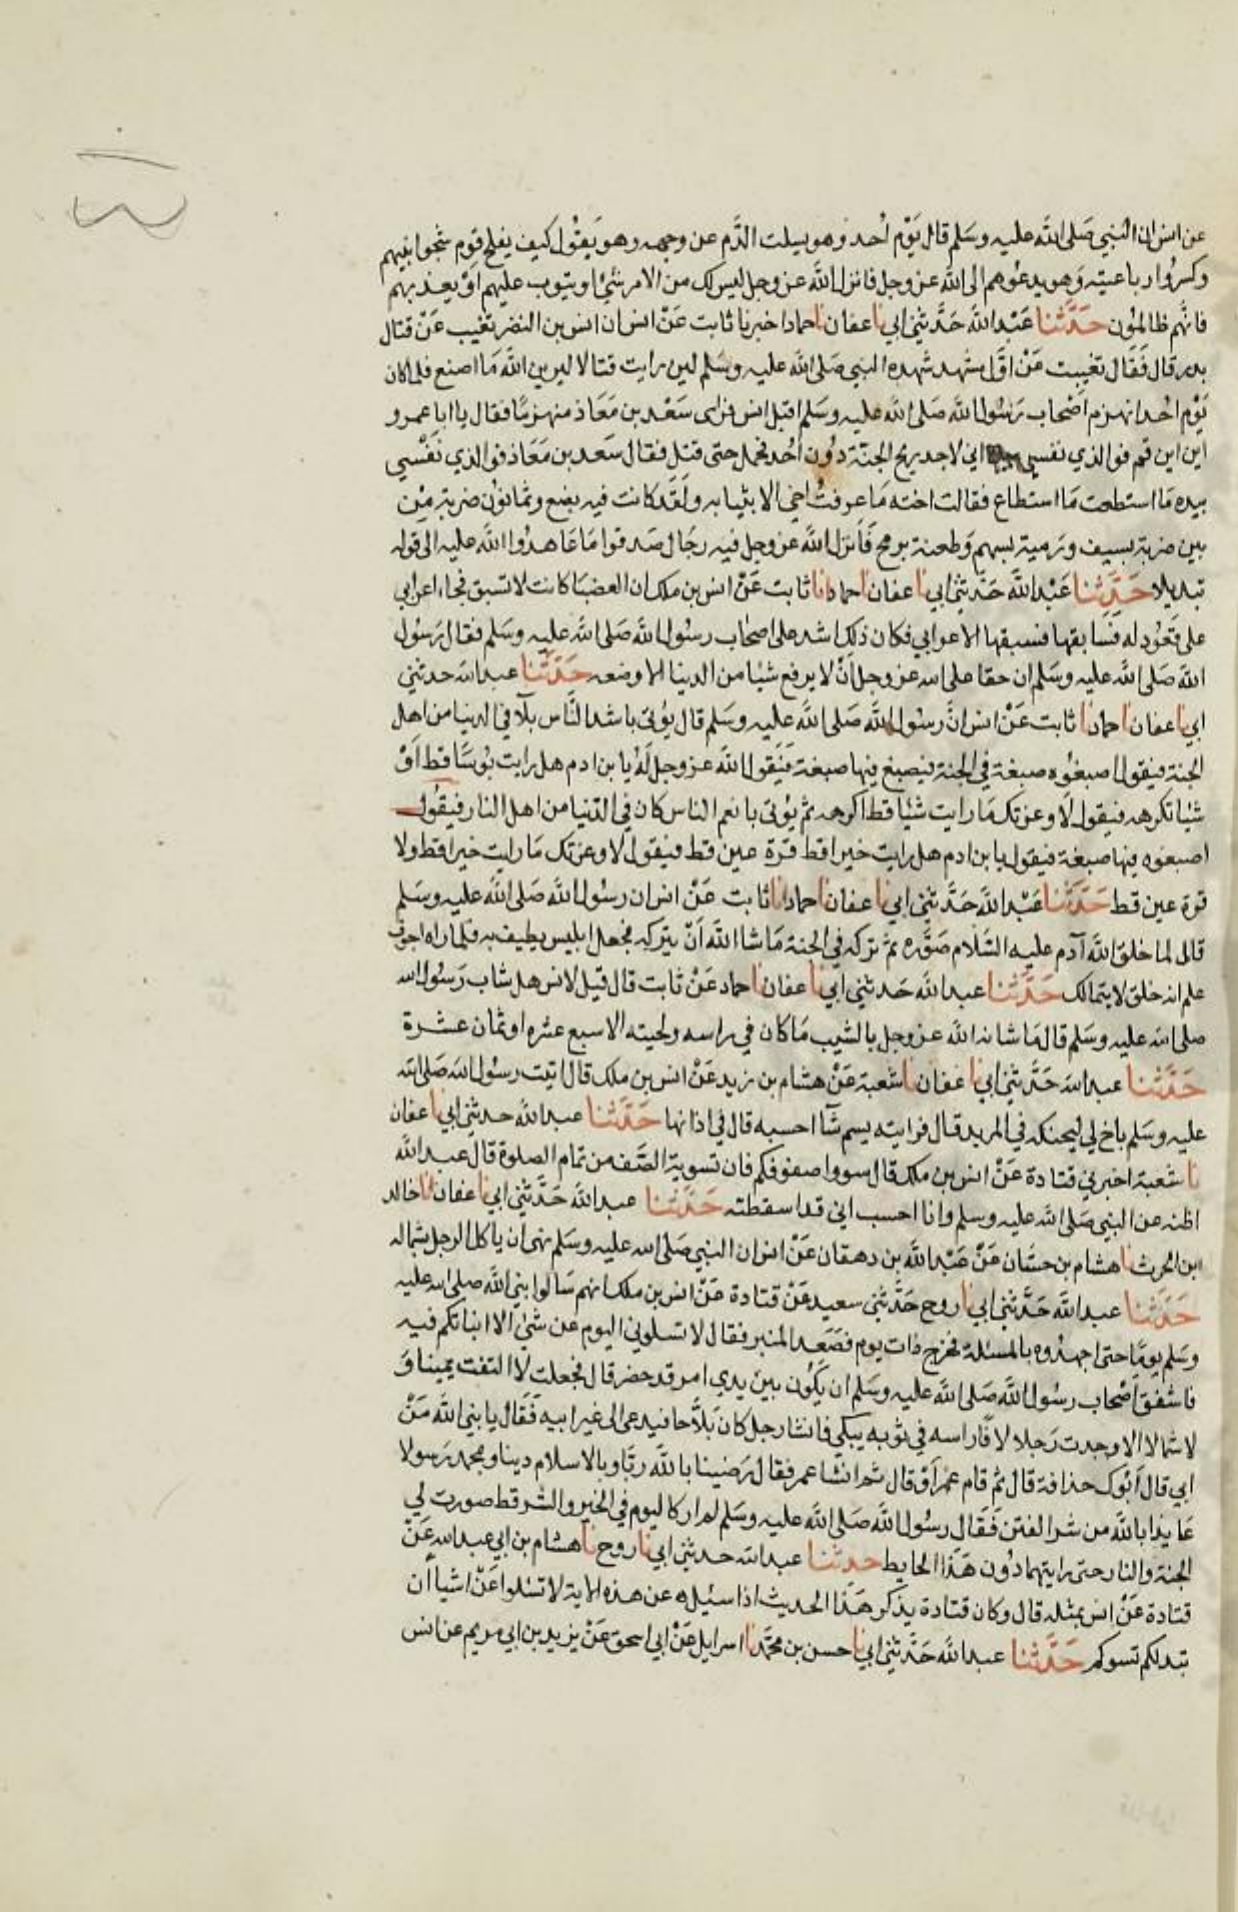 عن انس ان النبي صلى الله عليه وسلم قال يوم أحد وهو يسلت الدم عن وجهه وهو يقول كيف يفلح قوم شجوا نبيهم
وكسروا رباعيته وهو يدعوهم الى الله عز وجل فانزل الله عز وجل ليس لك من الامر شئ او يتوب عليهم او يعذبهم
فانهم ظالمون حدثنا عبد الله حدثني ابي نا عفان نا حماد اخبرنا ثابت عن انس ان انس بن النضر تغيب عن قتال
بدر قال فقال تغيبت عن اول مشهد شهده النبي صلى الله عليه وسلم لين رايت قتالا ليرين الله ما اصنع فلما كان
يوم احد انهزم اصحاب رسول الله صلى الله عليه وسلم اقبل انس فراى سعد بن معاذ منهزما فقال يا ابا عمرو
اين اين قم فوالذي نفسي بيده اني لاجد ريح الجنة دون أحد فحمل حتى قتل فقال سعد بن معاذ فوالذي نفسي
بيده ما استطعت ما استطاع فقالت اخته ما عرفت اخي الا بثيابه ولقد كانت فيه بضع وثمانون ضربة من
بين ضربة بسيف ورمية بسهم وطعنة برمح فانزل الله عز وجل فيه رجال صدقوا ما عاهدوا الله عليه الى قوله
تبديلا حدثنا عبد الله حدثني ابي نا عفان نا حماد انا ثابت عن انس بن ملك ان العضبا كانت لا تسبق فجاء اعرابي
على قعود له فسابقها فسبقها الاعرابي فكان ذلك اشد على اصحاب رسول الله صلى الله عليه وسلم فقال رسول
الله صلى الله عليه وسلم ان حقا على الله عز وجل ان لا يرفع شيا من الدنيا الا وضعه حدثنا عبد الله حدثني
ابي نا عفان نا حماد نا ثابت عن انس ان رسول الله صلى الله عليه وسلم قال يؤتى باشد الناس بلآ في الدنيا من اهل
الجنة فيقول اصبغوه صبغة في الجنة فيصبغ فيها صبغة فيقول الله عز وجل له يا بن ادم هل رايت بوسا قط او
شيا تكرهه فيقول لا وعزتك ما رايت شيا قط اكرهه ثم يؤتى بانعم الناس كان في الدنيا من اهل النار فيقول
اصبغوه فيها صبغة فيقول يا بن ادم هل رايت خيرا قط قرة عين قط فيقول لا وعزتك ما رايت خيرا قط ولا
قرة عين قط حدثنا عبد الله حدثني ابي نا عفان نا حماد انا ثابت عن انس ان رسول الله صلى الله عليه وسلم
قال لما خلق الله آدم عليه السلام صوره ثم تركه في الجنة ما شا الله ان يتركه فجعل ابليس يطيف به فلما راه اجوف
علم انه خلق لا يتمالك حدثنا عبد الله حدثني ابي نا عفان نا حماد عن ثابت قال قيل لانس هل شاب رسول الله
صلى الله عليه وسلم قال ما شانه الله عز وجل بالشيب ما كان في راسه ولحيته الا سبع عشره او ثمان عشرة
حدثنا عبد الله حدثني ابي نا عفان نا شعبة عن هشام بن زيد عن انس بن ملك قال اتيت رسول الله صلى الله
عليه وسلم باخ لي ليحنكه في المربد قال فرايته يسم شآ احسبه قال في اذانها حدثنا عبد الله حدثني ابي نا عفان
نا شعبة اخبرني قتادة عن انس بن ملك قال سووا صفوفكم فان تسوية الصف من تمام الصلوة قال عبد الله
اظنه عن النبي صلى الله عليه وسلم وانا احسب اني قد اسقطته حدثنا عبد الله حدثني ابي نا عفان نا خالد
ابن الحرث نا هشام بن حسان عن عبد الله بن دهقان عن انس ان النبي صلى الله عليه وسلم نهى ان ياكل الرجل بشماله
حدثنا عبد الله حدثني ابي نا روح حدثني سعيد عن قتادة عن انس بن ملك انهم سالوا نبي الله صلى الله عليه
وسلم يوما حتى اجهدوه بالمسئلة فخرج ذات يوم فصعد المنبر فقال لا تسلوني اليوم عن شئ الا انباتكم فيه
فاشفق اصحاب رسول الله صلى الله عليه وسلم ان يكون بين يدي امر قد حضر قال فجعلت لا التفت يمينا و
لا شمالا الا وجدت رجلا لافا راسه في ثوبه يبكي فانشا رجل كان يلاحا فيدعى الى غير ابيه فقال يا نبي الله من
ابي قال أبوك حذافة قال ثم قام عمر او قال ثم انشا عمر فقال رضينا بالله ربا وبالاسلام دينا وبمحمد رسولا
عايذا بالله من شر الفتن فقال رسول الله صلى الله عليه وسلم لم ار كاليوم في الخير والشر قط صورت لي
الجنة والنار حتى رايتهما دون هذا الحايط حدثنا عبد الله حدثني ابي نا روح نا هشام بن ابي عبد الله عن
قتادة عن انس بمثله قال وكان قتادة يذكر هذا الحديث اذا سئل عن هذه الاية لا تسئلوا عن اشيا أن
تبدلكم تسوكم حدثنا عبد الله حدثني ابي نا حسن بن محمد نا اسرايل عن ابي اسحق عن يزيد بن ابي مريم عن انس